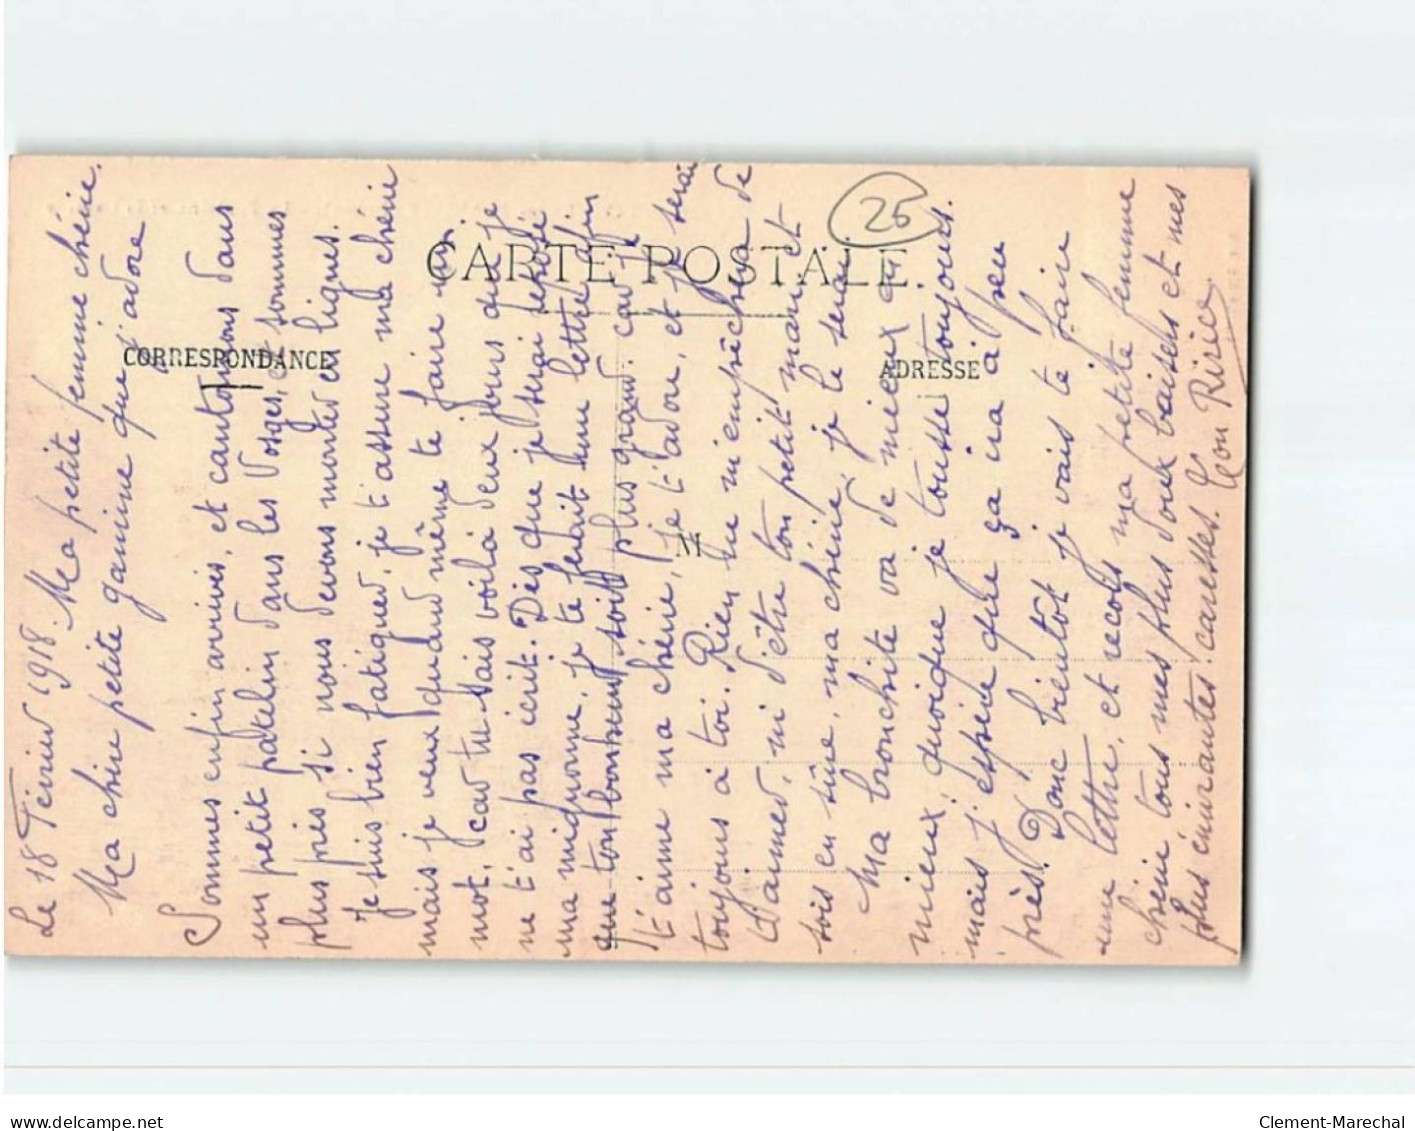 Le 18 Février 1918. Ma petite femme chérie.
Ma chère petite gamine que j'adore
Sommes enfin arrivés, et cantonnons dans
un petit patelin dans les Vosges, et sommes
plus près si nous devons monter en lignes.
Je suis bien fatiguée, je t'assure ma chérie
mais je veux quand même te faire un
mot, car tu sais voilà deux jours que je
ne t'ai pas écrit. Dès que je serai reposé
ma mignonne, je te ferait une lettre afin
que ton bonheur soit plus grand. car je
t'aime ma chérie, je t'adore, et je serai
toujours à toi. Rien ne m'empêchera de
t'aimer, ni d'être ton petit mari et
sois en sûre, ma chérie, je le serai.
Ma bronchite va de mieux en
mieux, quoique je tousse toujours.
mais j'espère que ça ira à peu
près. Donc bientôt je vais te faire
une lettre, et reçois ma petite femme
chérie tous mes plus doux baisers et mes
plus enivrantes caresses.
CARTE POSTALE
CORRESPONDANCE
ADRESSE
M
25
delcampe.net
Clement-Marechal